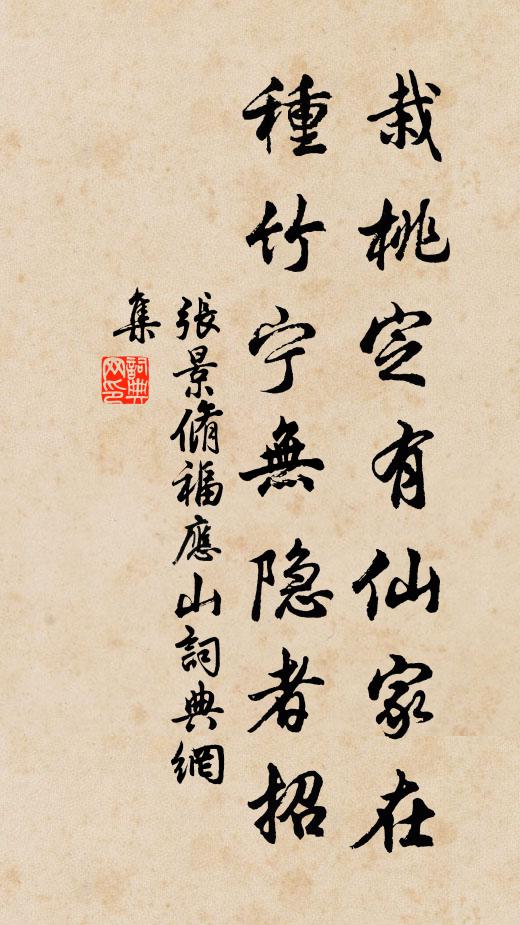 栽桃定有仙家在
種竹宁無隐者招
張景脩福應山詞典網
集
詞典网印